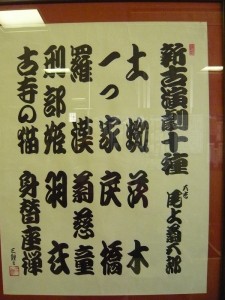 新古演劇十種
尾上菊五郎
土蜘 茨木
一つ家 戻橋
羅漢 菊慈童
刑部姫 羽衣
古寺の猫 身替座禅